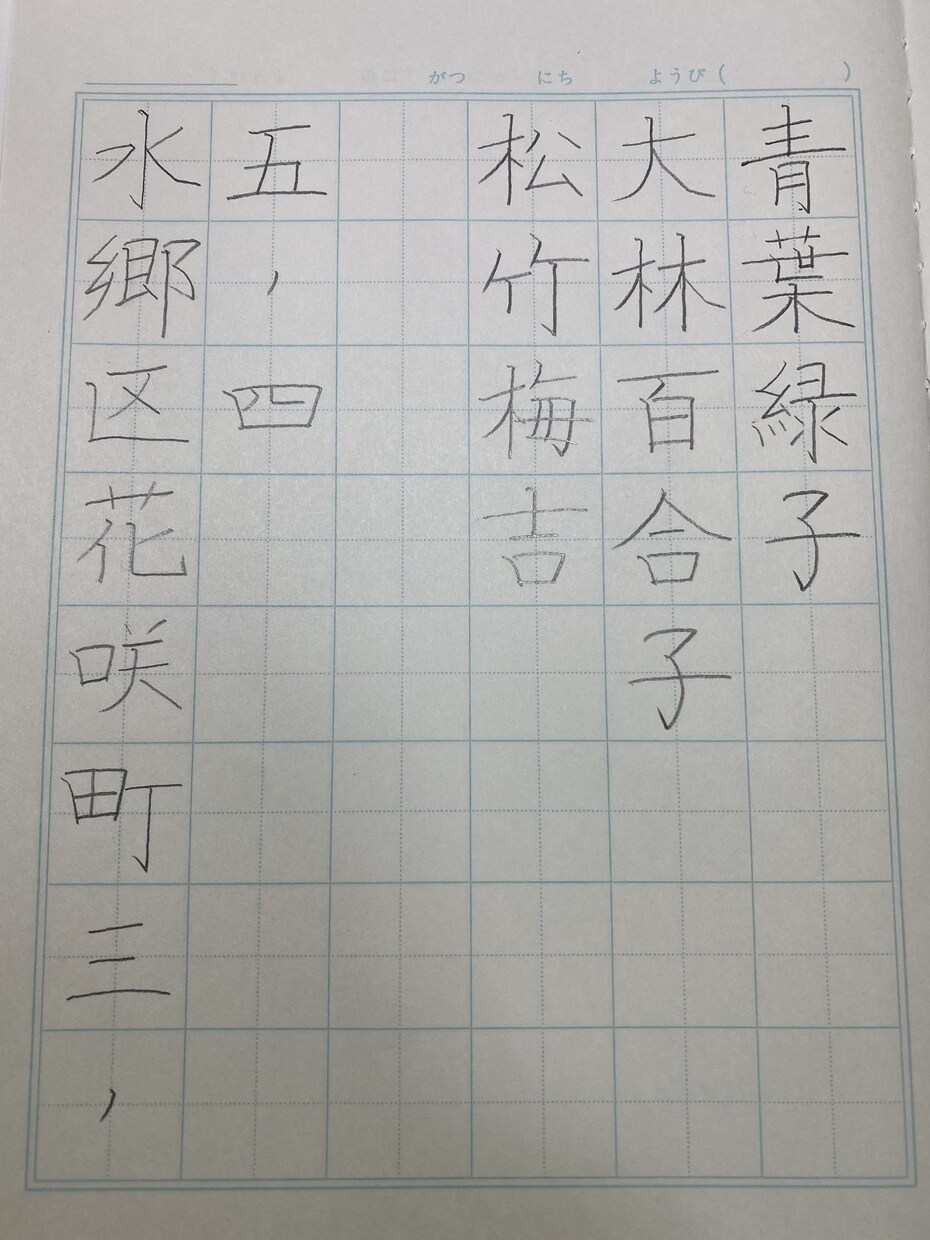 がつ にち ようび( )
水郷区花咲町三，
五，四
松竹梅吉
大林百合子
青葉緑子